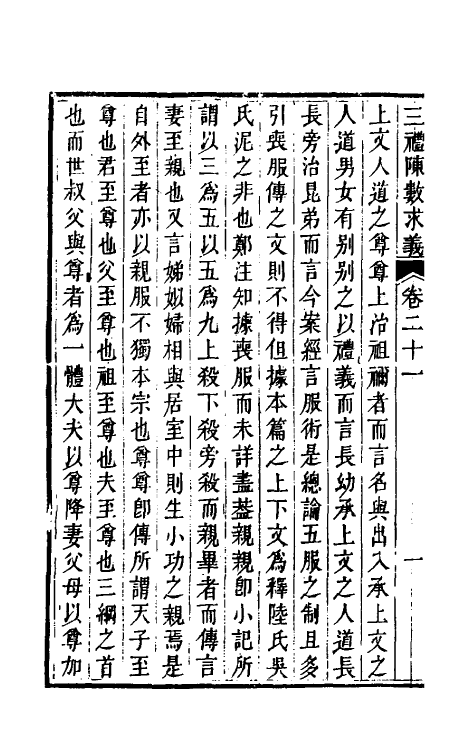 三禮陳數求義 卷二十一 一
上文人道之尊尊上治祖禰者而言名與出入承上文之
人道男女有别别之以禮義而言長幼承上文之人道長
長旁治昆弟而言今案經言服術是總論五服之制且多
引喪服傳之文則不得但據本篇之上下文為釋陸氏吳
氏泥之非也鄭注知據喪服而未詳盡葢親親卽小記所
謂以三為五以五為九上殺下殺旁殺而親畢者而傳言
妻至親也又言娣姒婦相與居室中則生小功之親焉是
自外至者亦以親服不獨本宗也尊尊卽傳所謂天子至
尊也君至尊也父至尊也祖至尊也夫至尊也三綱之首
也而世叔父與尊者為一體大夫以尊降妻父母以尊加